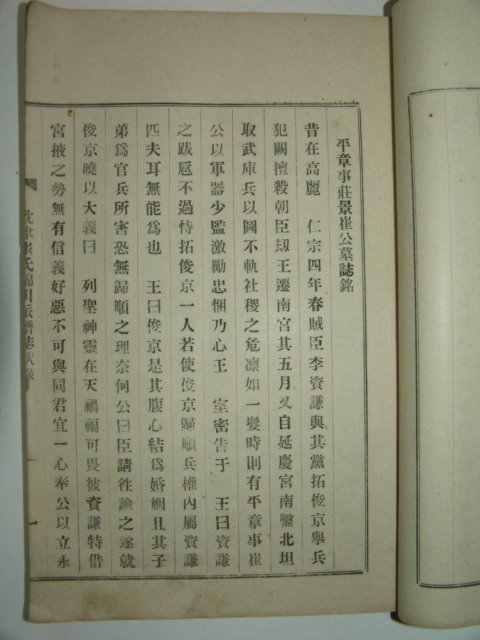 平章事莊景崔公墓誌銘
昔在高麗 仁宗四年春賊臣李資謙與其黨拓俊京舉兵
犯闕擅殺朝臣刼王遷南宮其五月又自延慶宮南鑿北垣
取武庫兵以圖不軌社稷之危凛如一髮時則有平章事崔
公以軍器少監激勵忠悃乃心王 室密告于 王曰資謙
之跋扈不過恃拓俊京一人若使俊京歸順兵權內屬資謙
匹夫耳無能爲也 王曰俊京是其腹心結爲婚姻且其子
弟爲官兵所害恐無歸順之理奈何公曰臣請徃諭之遂就
俊京曉以大義曰 列聖神靈在天禍福可畏彼資謙特借
宮掖之勢無有信義好惡不可與同君宜一心奉公以立永
津崔氏 川派譜誌